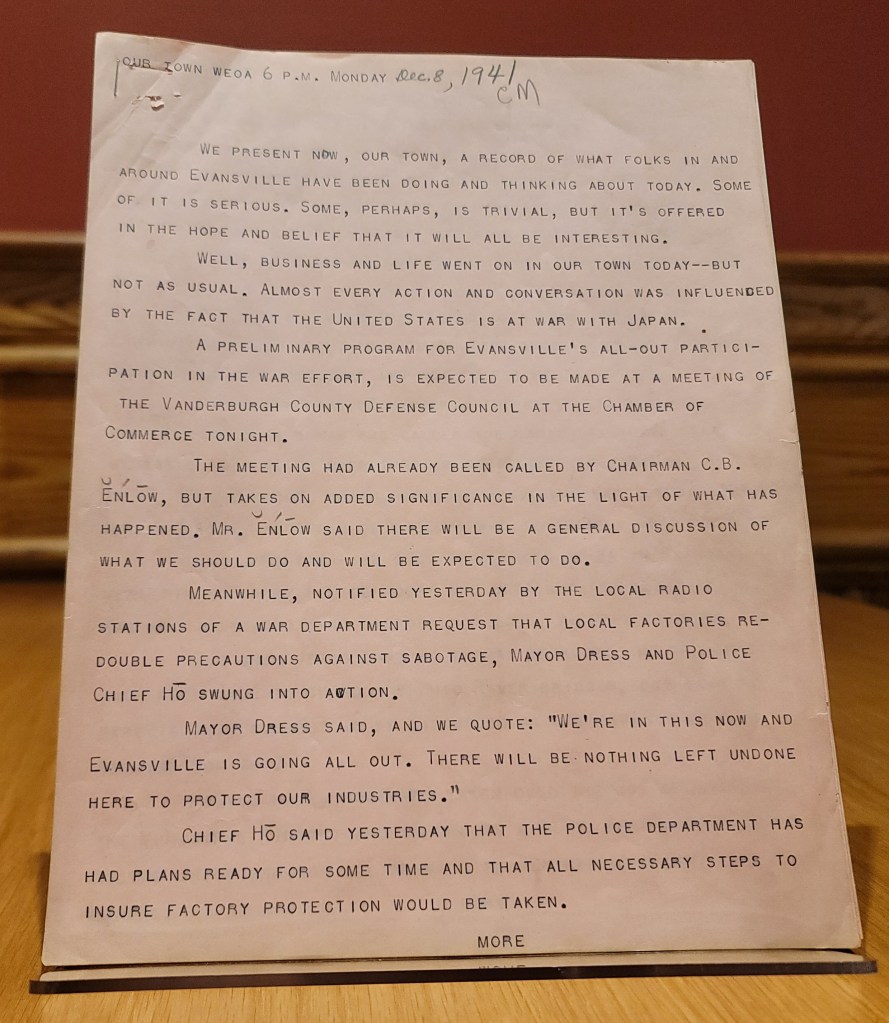 OUR TOWN WEOA 6 P.M. MONDAY Dec. 8, 1941
CM
WE PRESENT NOW, OUR TOWN, A RECORD OF WHAT FOLKS IN AND
AROUND EVANSVILLE HAVE BEEN DOING AND THINKING ABOUT TODAY. SOME
OF IT IS SERIOUS. SOME, PERHAPS, IS TRIVIAL, BUT IT'S OFFERED
IN THE HOPE AND BELIEF THAT IT WILL ALL BE INTERESTING.
WELL, BUSINESS AND LIFE WENT ON IN OUR TOWN TODAY--BUT
NOT AS USUAL. ALMOST EVERY ACTION AND CONVERSATION WAS INFLUENCED
BY THE FACT THAT THE UNITED STATES IS AT WAR WITH JAPAN.
A PRELIMINARY PROGRAM FOR EVANSVILLE'S ALL-OUT PARTICI-
PATION IN THE WAR EFFORT, IS EXPECTED TO BE MADE AT A MEETING OF
THE VANDERBURGH COUNTY DEFENSE COUNCIL AT THE CHAMBER OF
COMMERCE TONIGHT.
THE MEETING HAD ALREADY BEEN CALLED BY CHAIRMAN C.B.
ENLOW, BUT TAKES ON ADDED SIGNIFICANCE IN THE LIGHT OF WHAT HAS
HAPPENED. MR. ENLOW SAID THERE WILL BE A GENERAL DISCUSSION OF
WHAT WE SHOULD DO AND WILL BE EXPECTED TO DO.
MEANWHILE, NOTIFIED YESTERDAY BY THE LOCAL RADIO
STATIONS OF A WAR DEPARTMENT REQUEST THAT LOCAL FACTORIES RE-
DOUBLE PRECAUTIONS AGAINST SABOTAGE, MAYOR DRESS AND POLICE
CHIEF HŌ SWUNG INTO ACTION.
MAYOR DRESS SAID, AND WE QUOTE: "WE'RE IN THIS NOW AND
EVANSVILLE IS GOING ALL OUT. THERE WILL BE NOTHING LEFT UNDONE
HERE TO PROTECT OUR INDUSTRIES."
CHIEF HŌ SAID YESTERDAY THAT THE POLICE DEPARTMENT HAS
HAD PLANS READY FOR SOME TIME AND THAT ALL NECESSARY STEPS TO
INSURE FACTORY PROTECTION WOULD BE TAKEN.
MORE